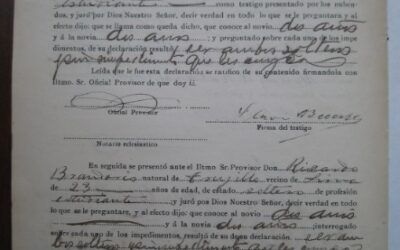 estudiante como testigo presentado por los mencio-
nados, y juró por Dios Nuestro Señor, decir verdad en todo lo que se le preguntara y al
efecto dijo: que se llama como queda dicho, que conoce al novio dos años
á la novia dos años y preguntado sobre cada uno de los impe
dimentos, de su declaración resultó ser ambos solteros
sin impedimento que les
Leida que le fue esta declaración se ratificó de su contenido firmándola con
Iltmo. Sr. Oficial Provisor de que doy fé.
Oficial Provisor
Firma del testigo
Notario eclesiastico
En seguida se presentó ante el Iltmo Sr. Provisor Don Ricardo
natural de Trujillo vecino de Lima
de 23 años de edad, de estado soltero de profesión
estudiante y juró por Dios Nuestro Señor, decir verdad en todo
lo que se le preguntare, y al efecto dijo: que conoce al novio dos años
y á la novia dos años interrogado
sobre cada uno de los impedimentos, resultó de su dgna declaración. ser am
bos solteros sin impedimento que les